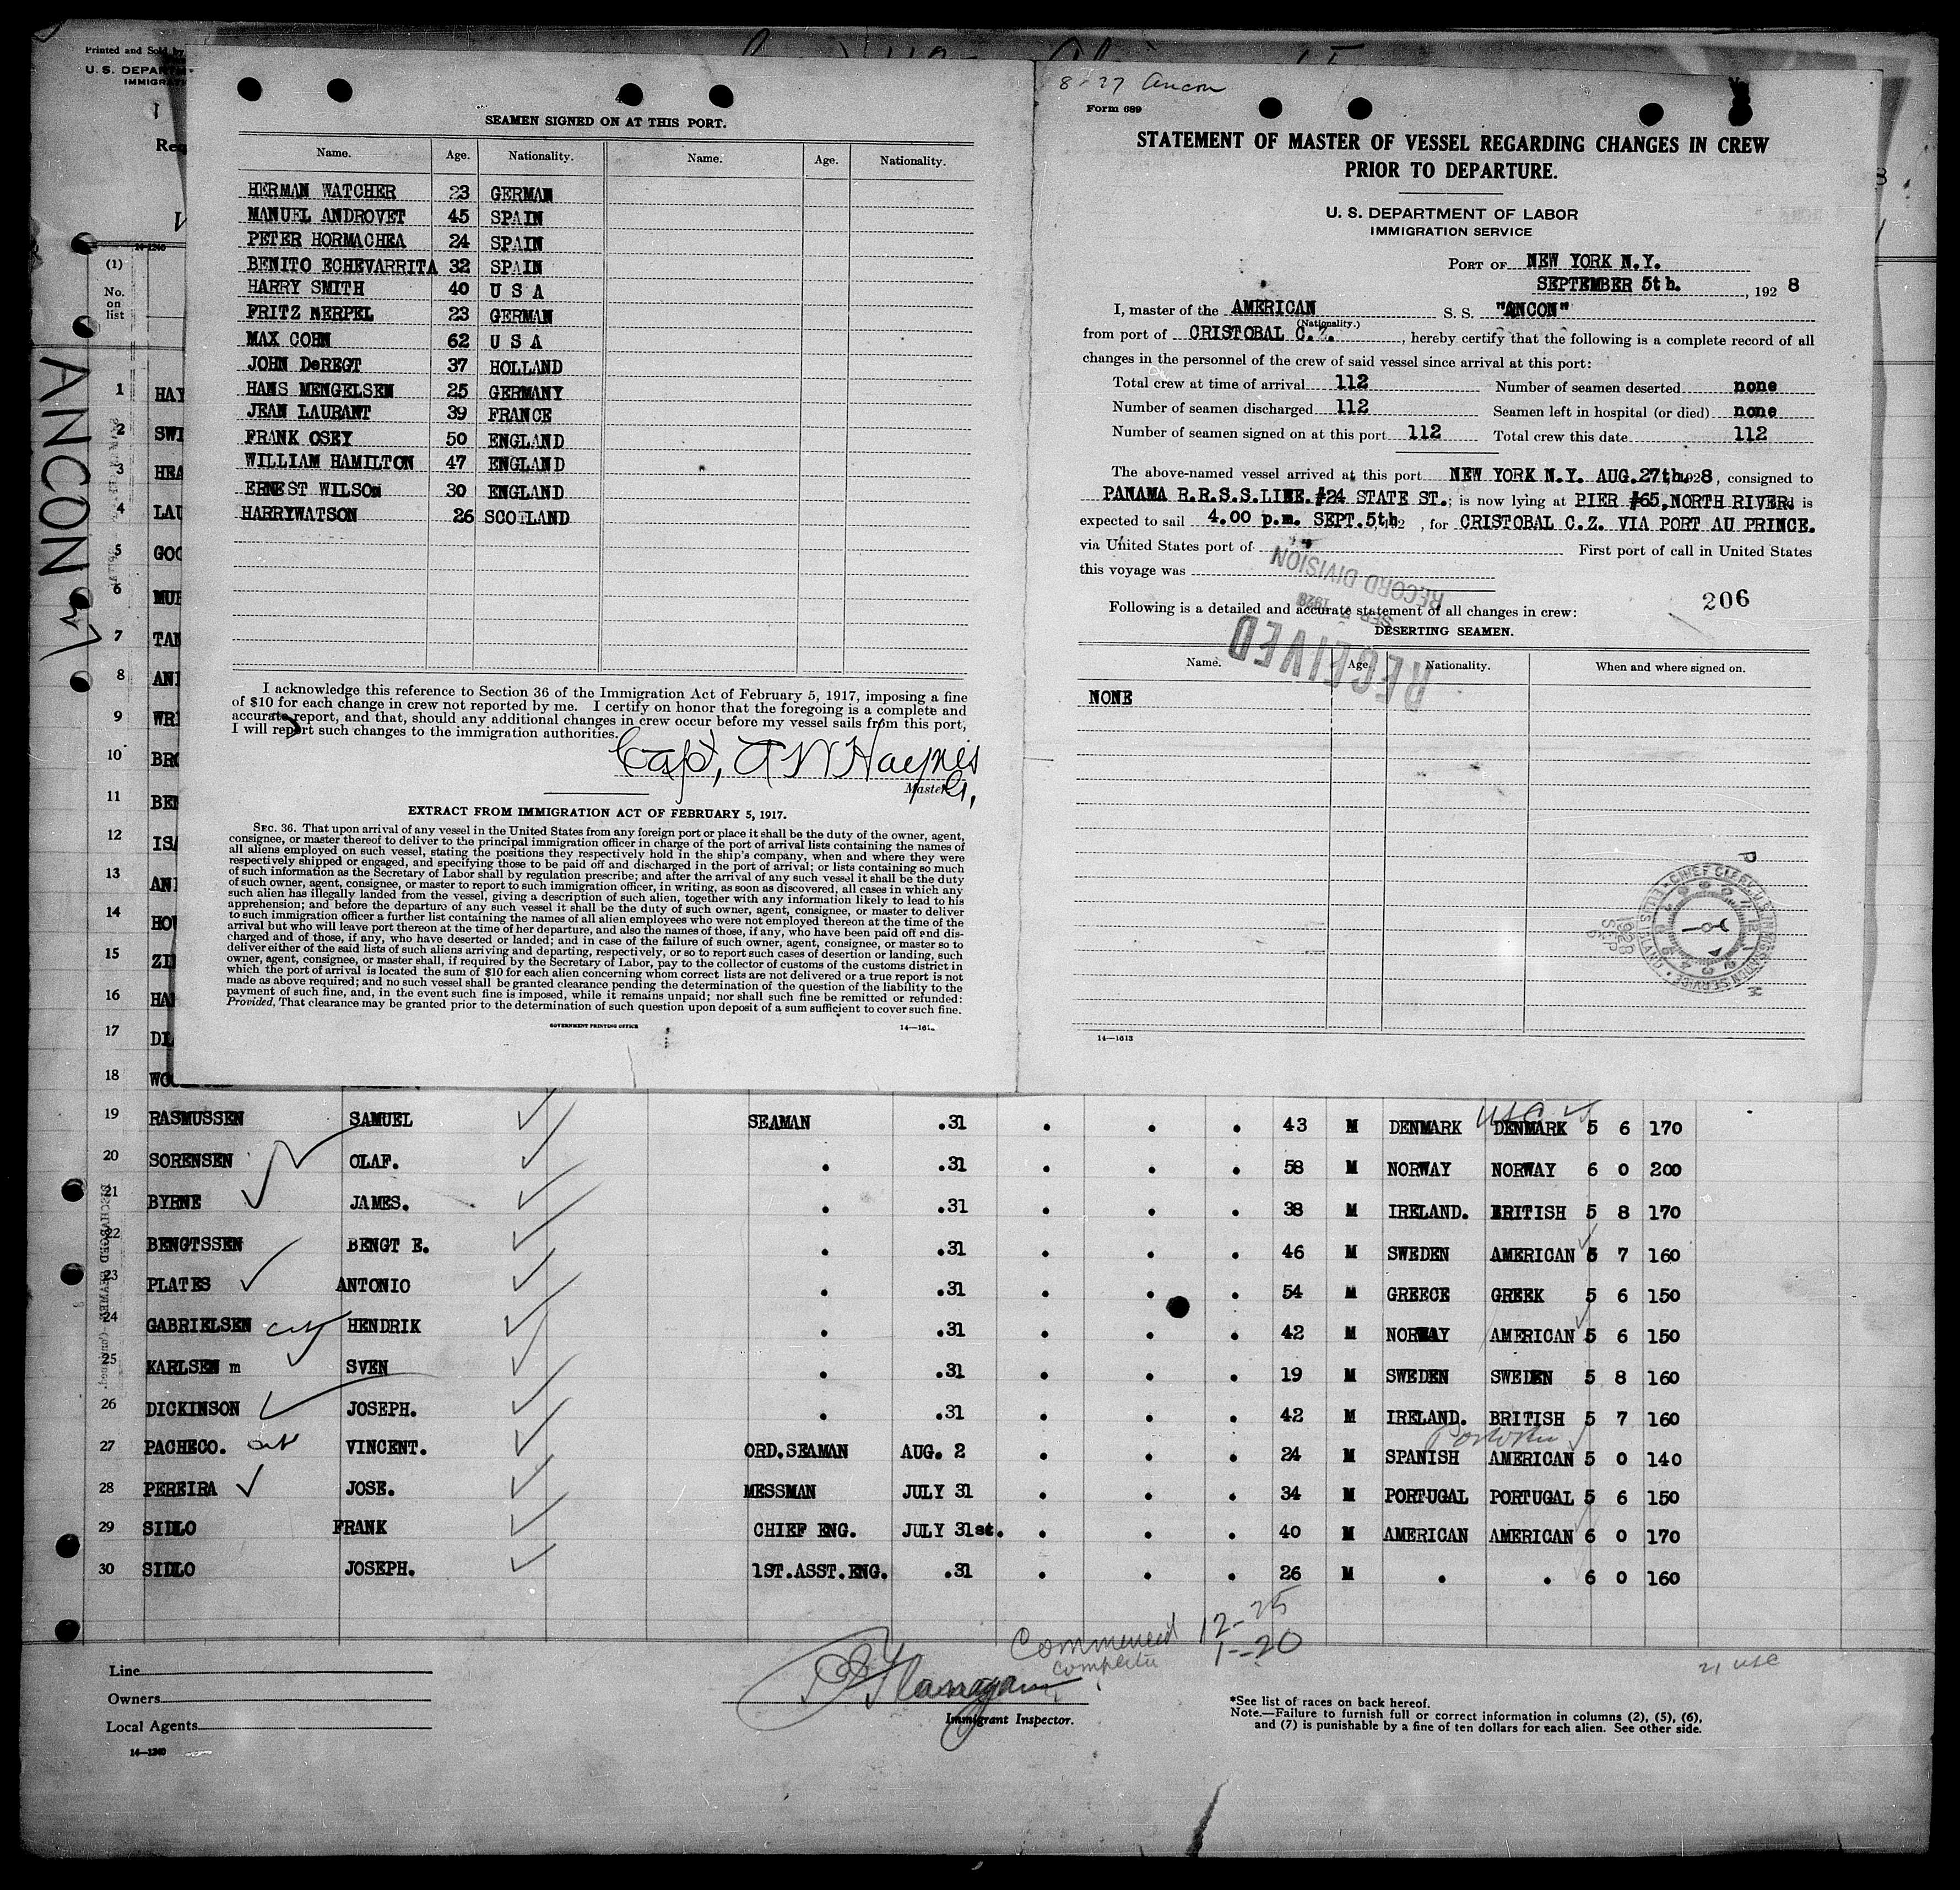 Printed and Sold by
U. S. DEPARTM
IMMIGRAT
Req
14-1240
(1)
No.
on
list
ANCON
SEAMEN SIGNED ON AT THIS PORT.
Name. Age. Nationality. Name. Age. Nationality.
HERMAN WATCHER 23 GERMAN
MANUEL ANDROVET 45 SPAIN
PETER HORMACHEA 24 SPAIN
BENITO ECHEVARRITA 32 SPAIN
HARRY SMITH 40 U S A
FRITZ NERPEL 23 GERMAN
MAX COHN 62 U S A
JOHN DeREGT 37 HOLLAND
HANS MENGELSEN 25 GERMANY
JEAN LAURANT 39 FRANCE
FRANK OSEY 50 ENGLAND
WILLIAM HAMILTON 47 ENGLAND
ERNEST WILSON 30 ENGLAND
HARRYWATSON 26 SCOTLAND
I acknowledge this reference to Section 36 of the Immigration Act of February 5, 1917, imposing a fine
of $10 for each change in crew not reported by me. I certify on honor that the foregoing is a complete and
accurate report, and that, should any additional changes in crew occur before my vessel sails from this port,
I will report such changes to the immigration authorities.
Capt, A W Haynes
Master
EXTRACT FROM IMMIGRATION ACT OF FEBRUARY 5, 1917.
SEC. 36. That upon arrival of any vessel in the United States from any foreign port or place it shall be the duty of the owner, agent,
consignee, or master thereof to deliver to the principal immigration officer in charge of the port of arrival lists containing the names of
all aliens employed on such vessel, stating the positions they respectively hold in the ship's company, when and where they were
respectively shipped or engaged, and specifying those to be paid off and discharged in the port of arrival; or lists containing so much
of such information as the Secretary of Labor shall by regulation prescribe; and after the arrival of any such vessel it shall be the duty
of such owner, agent, consignee, or master to report to such immigration officer, in writing, as soon as discovered, all cases in which any
such alien has illegally landed from the vessel, giving a description of such alien, together with any information likely to lead to his
apprehension; and before the departure of any such vessel it shall be the duty of such owner, agent, consignee, or master to deliver
to such immigration officer a further list containing the names of all alien employees who were not employed thereon at the time of the
arrival but who will leave port thereon at the time of her departure, and also the names of those, if any, who have been paid off and dis-
charged and of those, if any, who have deserted or landed; and in case of the failure of such owner, agent, consignee, or master so to
deliver either of the said lists of such aliens arriving and departing, respectively, or so to report such cases of desertion or landing, such
owner, agent, consignee, or master shall, if required by the Secretary of Labor, pay to the collector of customs of the customs district in
which the port of arrival is located the sum of $10 for each alien concerning whom correct lists are not delivered or a true report is not
made as above required; and no such vessel shall be granted clearance pending the determination of the question of the liability to the
payment of such fine, and, in the event such fine is imposed, while it remains unpaid; nor shall such fine be remitted or refunded:
Provided, That clearance may be granted prior to the determination of such question upon deposit of a sum sufficient to cover such fine.
GOVERNMENT PRINTING OFFICE
8-27 Ancon
Form 689
STATEMENT OF MASTER OF VESSEL REGARDING CHANGES IN CREW
PRIOR TO DEPARTURE.
U. S. DEPARTMENT OF LABOR
IMMIGRATION SERVICE
PORT OF NEW YORK N.Y.
SEPTEMBER 5th. , 192 8
I, master of the AMERICAN S. S. "ANCON"
(Nationality.)
from port of CRISTOBAL C.Z. , hereby certify that the following is a complete record of all
changes in the personnel of the crew of said vessel since arrival at this port:
Total crew at time of arrival 112 Number of seamen deserted none
Number of seamen discharged 112 Seamen left in hospital (or died) none
Number of seamen signed on at this port 112 Total crew this date 112
The above-named vessel arrived at this port NEW YORK N.Y. AUG.27th, 1928, consigned to
PANAMA R.R.S.S.LINE.#24 STATE ST.; is now lying at PIER #65,NORTH RIVER, is
expected to sail 4.00 p.m. SEPT.5th, 192 , for CRISTOBAL C.Z. VIA PORT AU PRINCE.
via United States port of First port of call in United States
this voyage was
RECORD DIVISION
SEP 5 1928
RECEIVED
206
Following is a detailed and accurate statement of all changes in crew:
DESERTING SEAMEN.
Name. Age. Nationality. When and where signed on.
NONE
14—1613
1 HAY
2 SWI
3 HEA
4 LAU
5 GOO
6 MUR
7 TAN
8 AN
9 WRI
10 BRO
11 BE
12 ISA
13 AN
14 HO
15 ZI
16 HA
17 DI
18 WO
19 RASMUSSEN SAMUEL SEAMAN .31 43 M DENMARK DENMARK 5 6 170
USC
20 SORENSEN OLAF. .31 58 M NORWAY NORWAY 6 0 200
21 BYRNE JAMES. .31 38 M IRELAND. BRITISH 5 8 170
22 BENGTSSEN BENGT E. .31 46 M SWEDEN AMERICAN 5 7 160
23 PLATES ANTONIO .31 54 M GREECE GREEK 5 6 150
24 GABRIELSEN HENDRIK .31 42 M NORWAY AMERICAN 5 6 150
25 KARLSEN m SVEN .31 19 M SWEDEN SWEDEN 5 8 160
26 DICKINSON JOSEPH. .31 42 M IRELAND. BRITISH 5 7 160
27 PACHECO. VINCENT. ORD.SEAMAN AUG. 2 24 M SPANISH AMERICAN 5 0 140
28 PEREIRA JOSE. MESSMAN JULY 31 34 M PORTUGAL PORTUGAL 5 6 150
29 SIDLO FRANK CHIEF ENG. JULY 31st. 40 M AMERICAN AMERICAN 6 0 170
30 SIDLO JOSEPH. 1ST.ASST.ENG. .31 26 M 6 0 160
Commenced 12-25
complete 1-20
21 USC
Line
Owners
Local Agents
14—1240
Flanagan
Immigrant Inspector.
*See list of races on back hereof.
Note.—Failure to furnish full or correct information in columns (2), (5), (6),
and (7) is punishable by a fine of ten dollars for each alien. See other side.